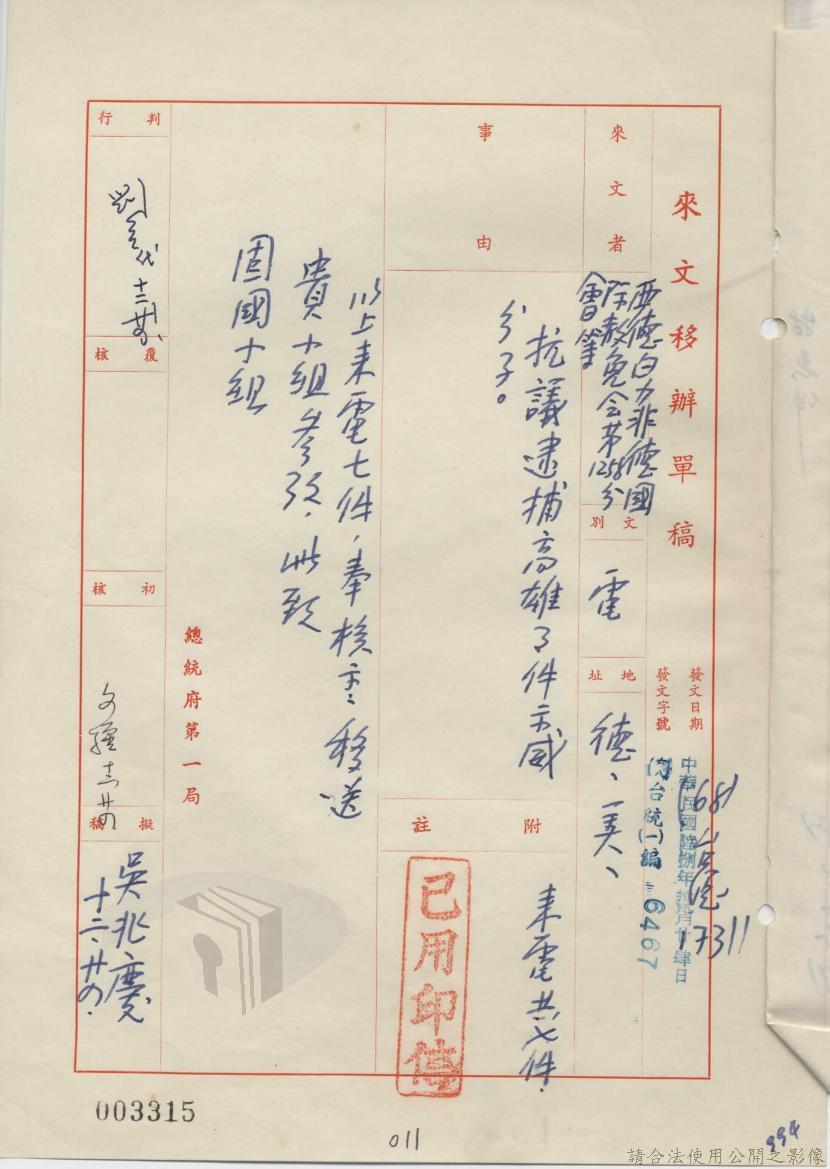 來文移辦單稿
發文日期
發文字號
中華民國陸捌年拾貳月廿肆日
(68)
17311
台統(一)編 6467
來文者
西德白力非德國
除赦免會第1258分
會等
文別
電
地址
德、美、
事由
抗議逮捕高雄事件示威
分子。
附註
來電共七件.
已用印信
以上來電七件,奉核示:移送
貴小組參考.此致
固國小組
總統府第一局
判行
十二廿
覆核
初核
擬稿
吳兆慶
十二、廿四.
003315
011
994
請合法使用公開之影像